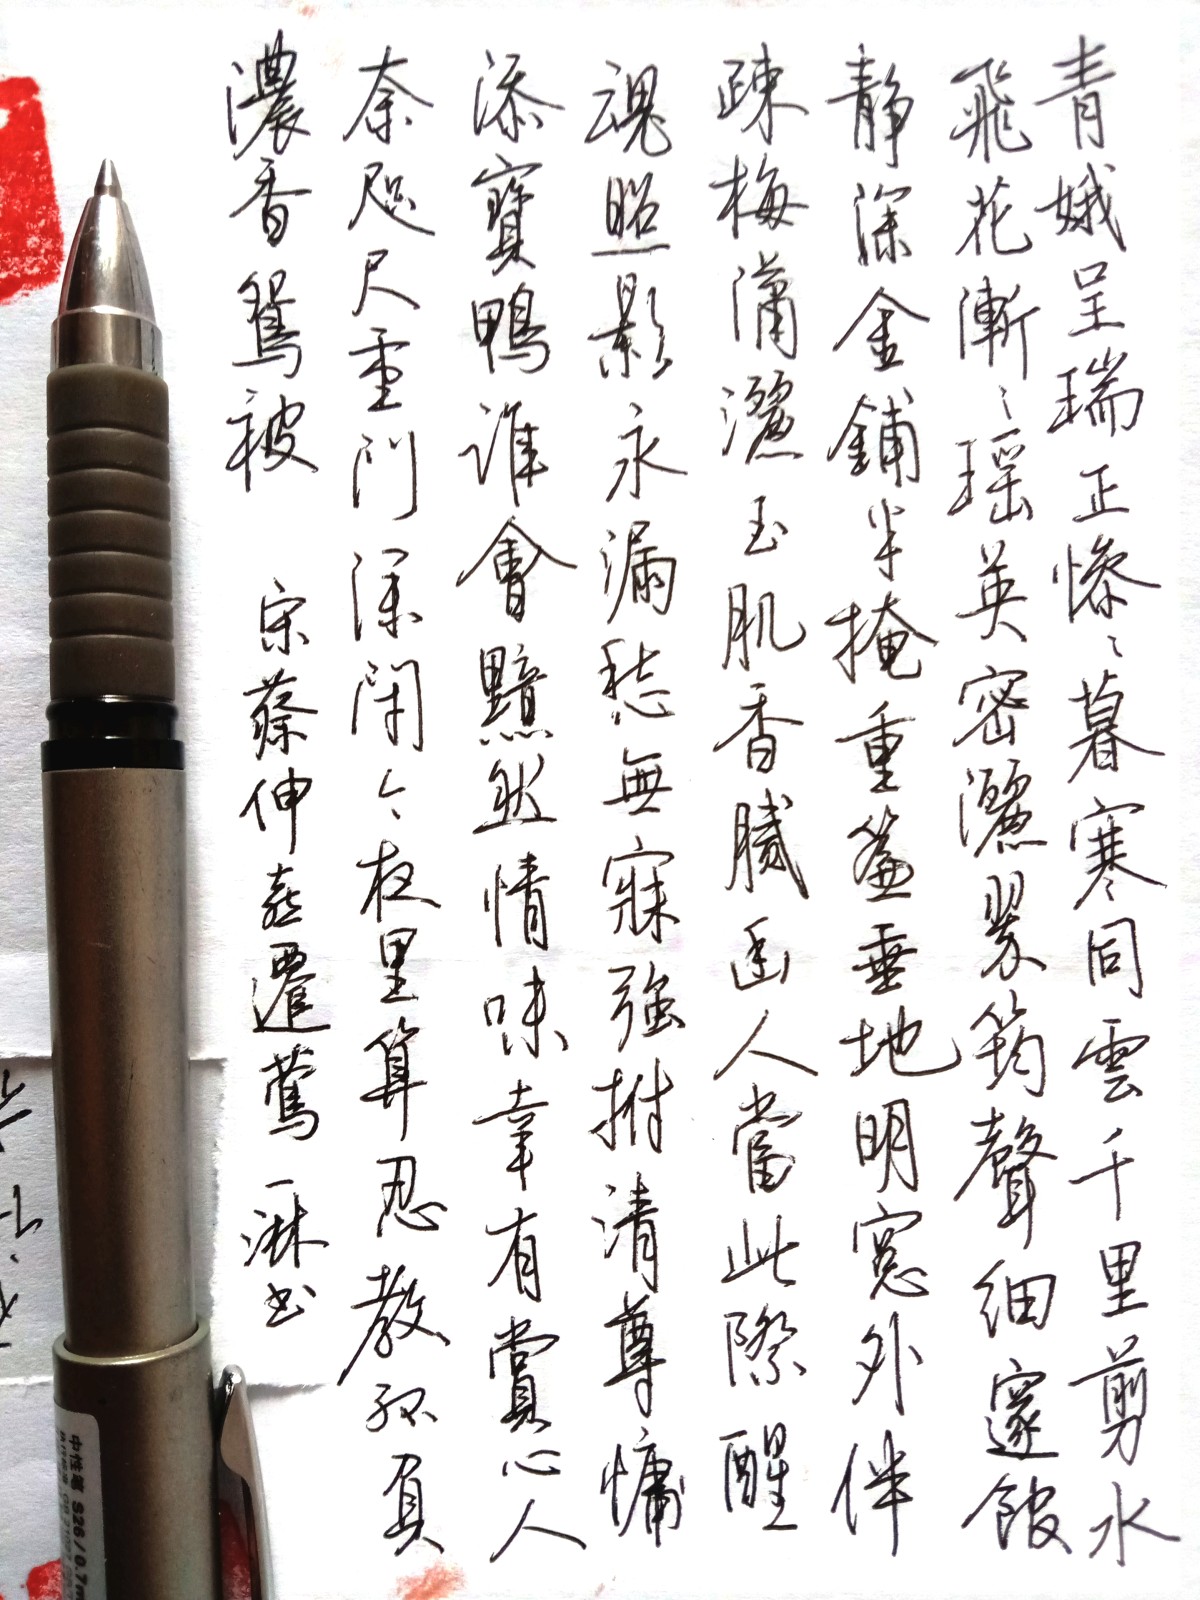 青娥呈瑞正慘〻暮寒同雲千里剪水
飛花漸〻瑤英密灑翠筠聲細邃館
靜深金鋪半掩重簾垂地明窻外伴
疎梅瀟灑玉肌香膩幽人當此際醒
魂照影永漏愁無寐強拊清尊慵
添寶鴨誰會黯然情味幸有賞心人
奈咫尺重門深閉今夜里算忍教孤負
濃香鴛被
宋蔡伸喜遷鶯 一淋書
中性笔 S26/0.7m